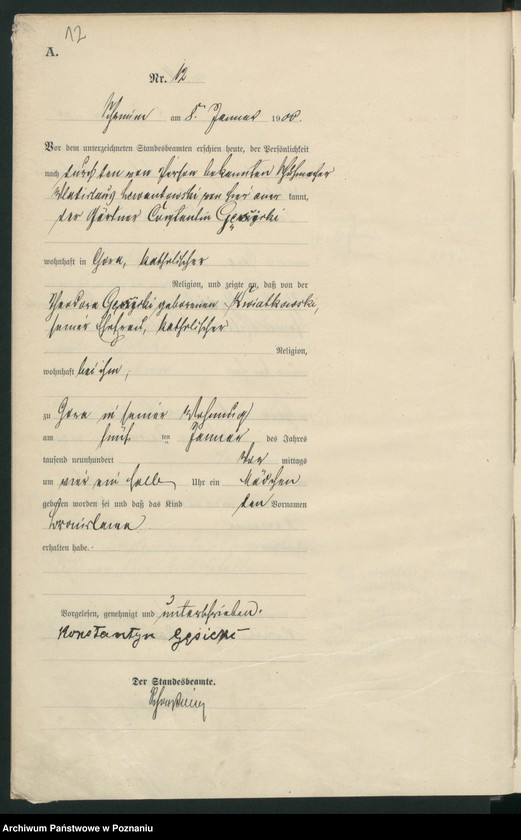 12
A.
Nr. 12
am 8. Januar 1900.
Vor dem unterzeichneten Standesbeamten erschien heute, der Persönlichkeit
nach durch den von Person bekannten Schuhmacher
von hier aner kannt,
der Gärtner Constantin
wohnhaft in Gora, katholischer
Religion, und zeigte an, daß von der
Theodora geborenen Kwiatkowska,
seiner Ehefrau, katholischer
Religion,
wohnhaft bei ihm,
zu Gora in seiner Wohnung
am fünf ten Januar des Jahres
tausend neunhundert Vor mittags
um vier ein halb Uhr ein Mädchen
geboren worden sei und daß das Kind den Vornamen
Bronislawa
erhalten habe.
Vorgelesen, genehmigt und unterschrieben.
Konstantyn Gęsicki
Der Standesbeamte.
Archiwum Państwowe w Poznaniu